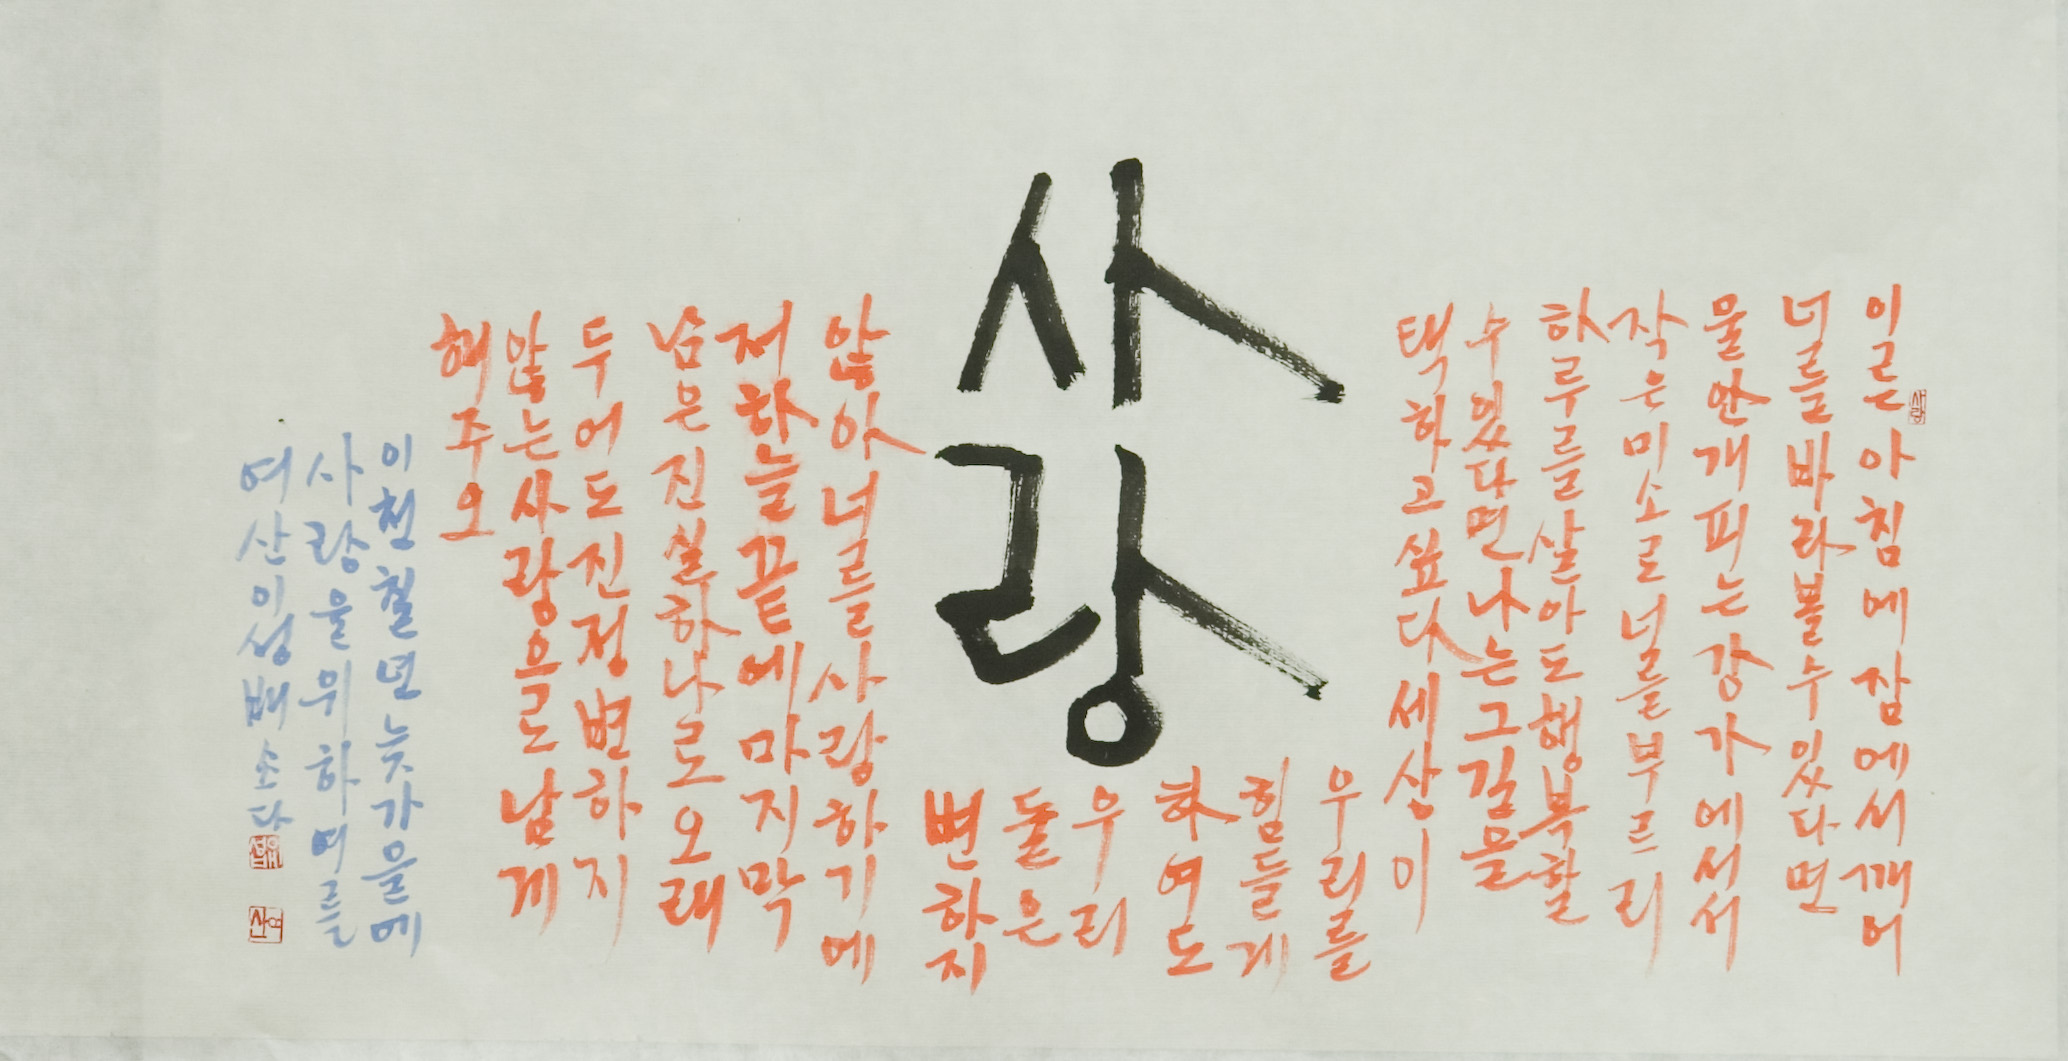 사랑
이른아침에잠에서깨어
너를바라볼수있다면
물안개피는강가에서서
작은미소로너를부르리
하루를살아도행복할
수있다면나는그길을
택하고싶다세상이
우리를
힘들게
하여도
우리
둘은
변하지
않아너를사랑하기에
저하늘끝에마지막
남은진실하나로오래
두어도진정변하지
않는사랑으로남게
해주오
이천칠년늦가을에
사랑을위하여를
여산이성배쓰다
사랑
여산